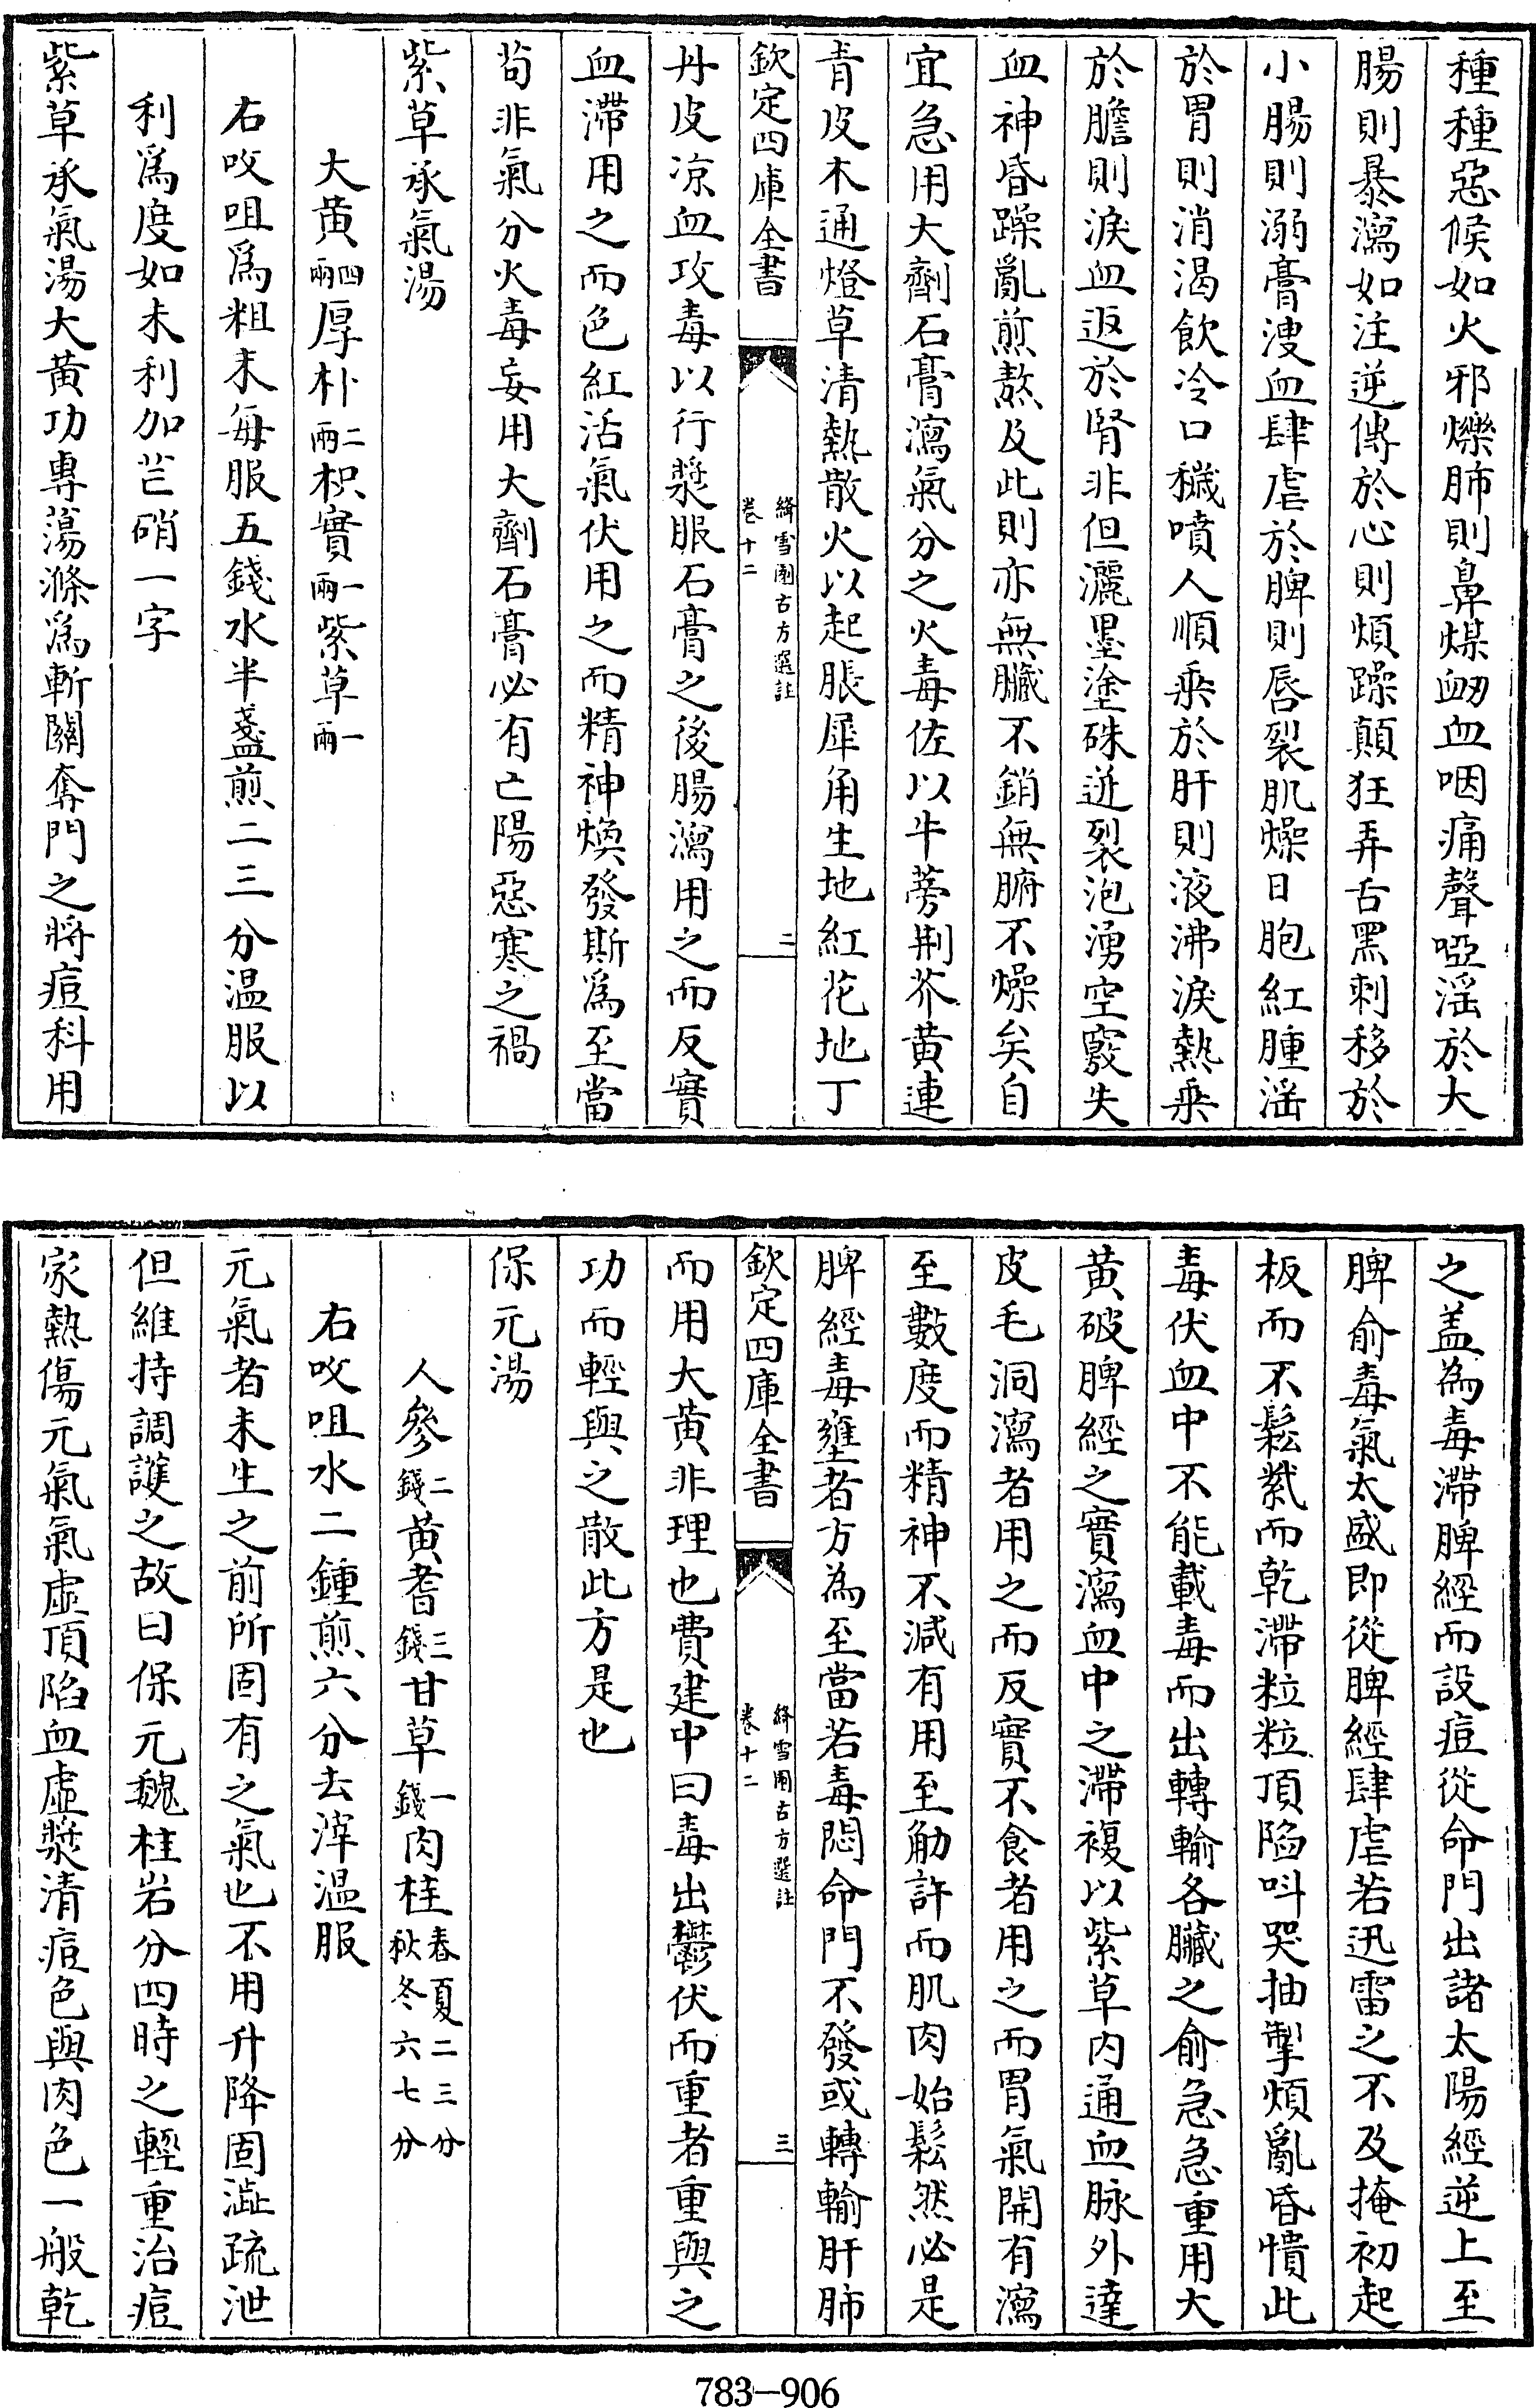 種種惡候如火邪爍肺則鼻煤衂血咽痛聲啞滛於大
腸則暴瀉如注逆傳於心則煩躁顛狂弄舌黑刺移於
小腸則溺膏溲血肆虐於脾則唇裂肌燥日胞紅腫滛
於胃則消渴飲冷口穢噴人順乘於肝則液沸淚熱乘
於膽則淚血返於腎非但灑墨塗硃迸裂泡湧空竅失
血神昏躁亂煎熬及此則亦無臟不銷無腑不燥矣自
宜急用大劑石膏瀉氣分之火毒佐以牛蒡荆芥黄連
青皮木通燈草清熱散火以起脹犀角生地紅花地丁
欽定四庫全書 絳雪園古方選註 卷十二 二
丹皮凉血攻毒以行漿服石膏之後腸瀉用之而反實
血滯用之而色紅活氣伏用之而精神煥發斯爲至當
茍非氣分火毒妄用大劑石膏必有亡陽惡寒之禍
紫草承氣湯
大黄四兩厚朴二兩枳實一兩紫草一兩
右㕮咀爲粗末每服五錢水半盞煎二三分温服以
利爲度如未利加芒硝一字
紫草承氣湯大黄功專蕩滌爲斬關奪門之將痘科用
之盖為毒滯脾經而設痘從命門出諸太陽經逆上至
脾俞毒氣太盛即從脾經肆虐若迅雷之不及掩初起
板而不鬆紫而乾滯粒粒頂陷呌哭抽掣煩亂昏憒此
毒伏血中不能載毒而出轉輸各臟之俞急急重用大
黄破脾經之實瀉血中之滯複以紫草内通血脉外達
皮毛洞瀉者用之而反實不食者用之而胃氣開有瀉
至數度而精神不減有用至觔許而肌肉始鬆然必是
脾經毒壅者方為至當若毒悶命門不發或轉輸肝肺
欽定四庫全書 絳雪園古方選註 卷十二 三
而用大黄非理也費建中曰毒出鬱伏而重者重與之
功而輕與之散此方是也
保元湯
人參二錢黄耆三錢甘草一錢肉桂春夏二三分秋冬六七分
右㕮咀水二鍾煎六分去滓温服
元氣者未生之前所固有之氣也不用升降固澁疏泄
但維持調護之故曰保元魏桂岩分四時之輕重治痘
家熱傷元氣氣虚頂陷血虚漿清痘色與肉色一般乾
783—906